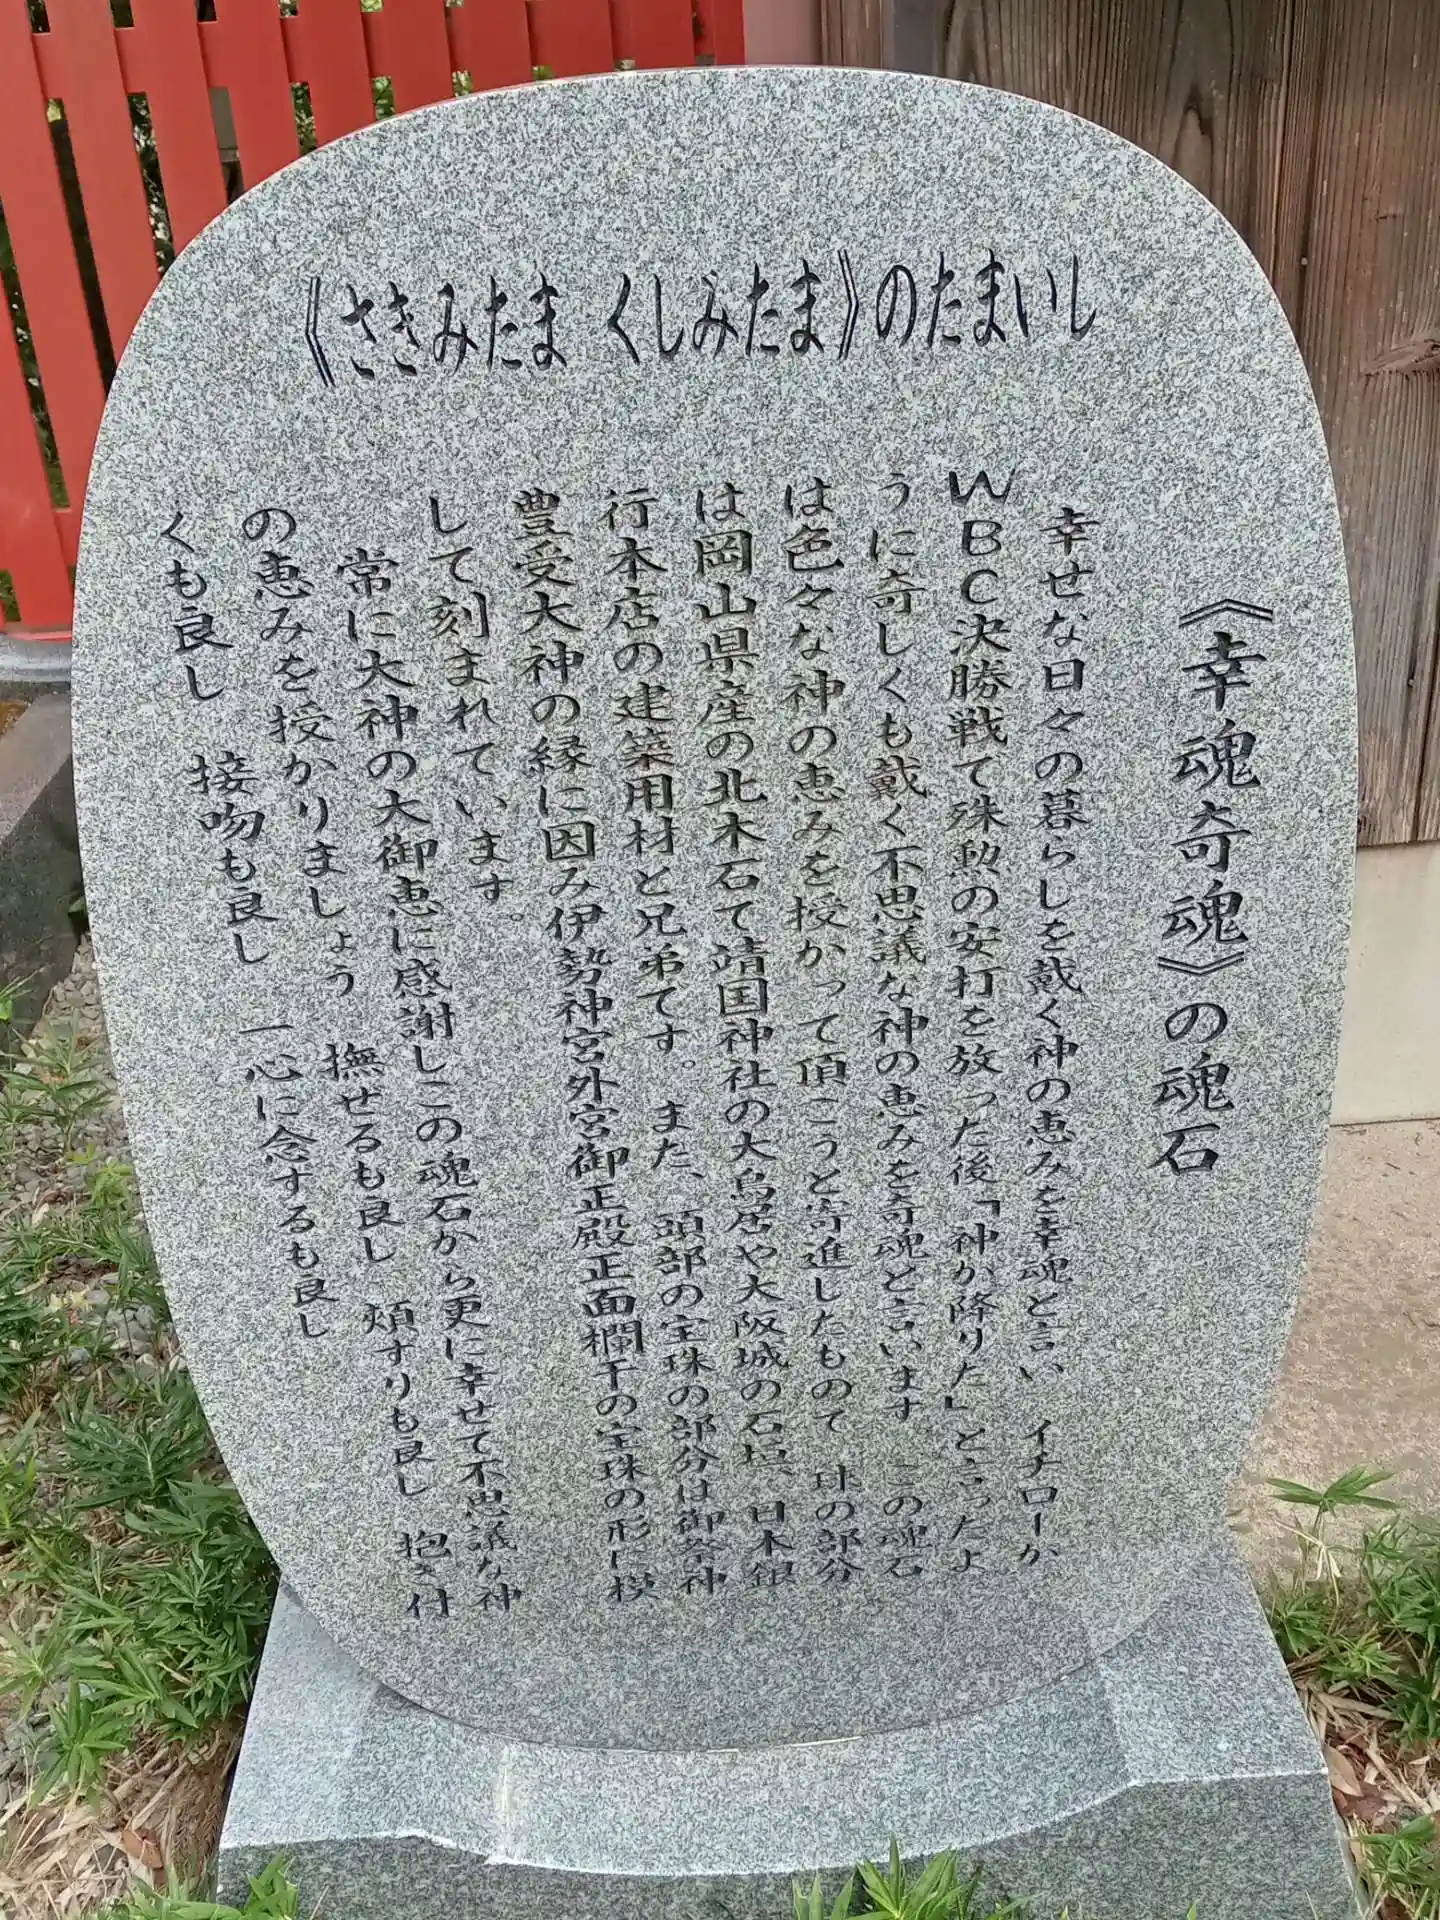 《さきみたま くしみたま》のたまいし
《幸魂奇魂》の魂石
幸せな日々の暮らしを戴く神の恵みを幸魂と言い イチローが
WBC決勝戦で殊勲の安打を放った後「神が降りた」と言ったよ
うに奇しくも戴く不思議な神の恵みを奇魂と言います この魂石
は色々な神の恵みを授かって頂こうと寄進したもので 球の部分
は岡山県産の北木石で靖国神社の大鳥居や大阪城の石垣、日本銀
行本店の建築用材と兄弟です。また、頭部の宝珠の部分は御祭神
豊受大神の縁に因み伊勢神宮外宮御正殿正面欄干の宝珠の形に模
して刻まれています。
常に大神の大御恵に感謝しこの魂石から更に幸せで不思議な神
の恵みを授かりましょう 撫ぜるも良し 頬すりも良し 抱き付
くも良し 接吻も良し 一心に念するも良し